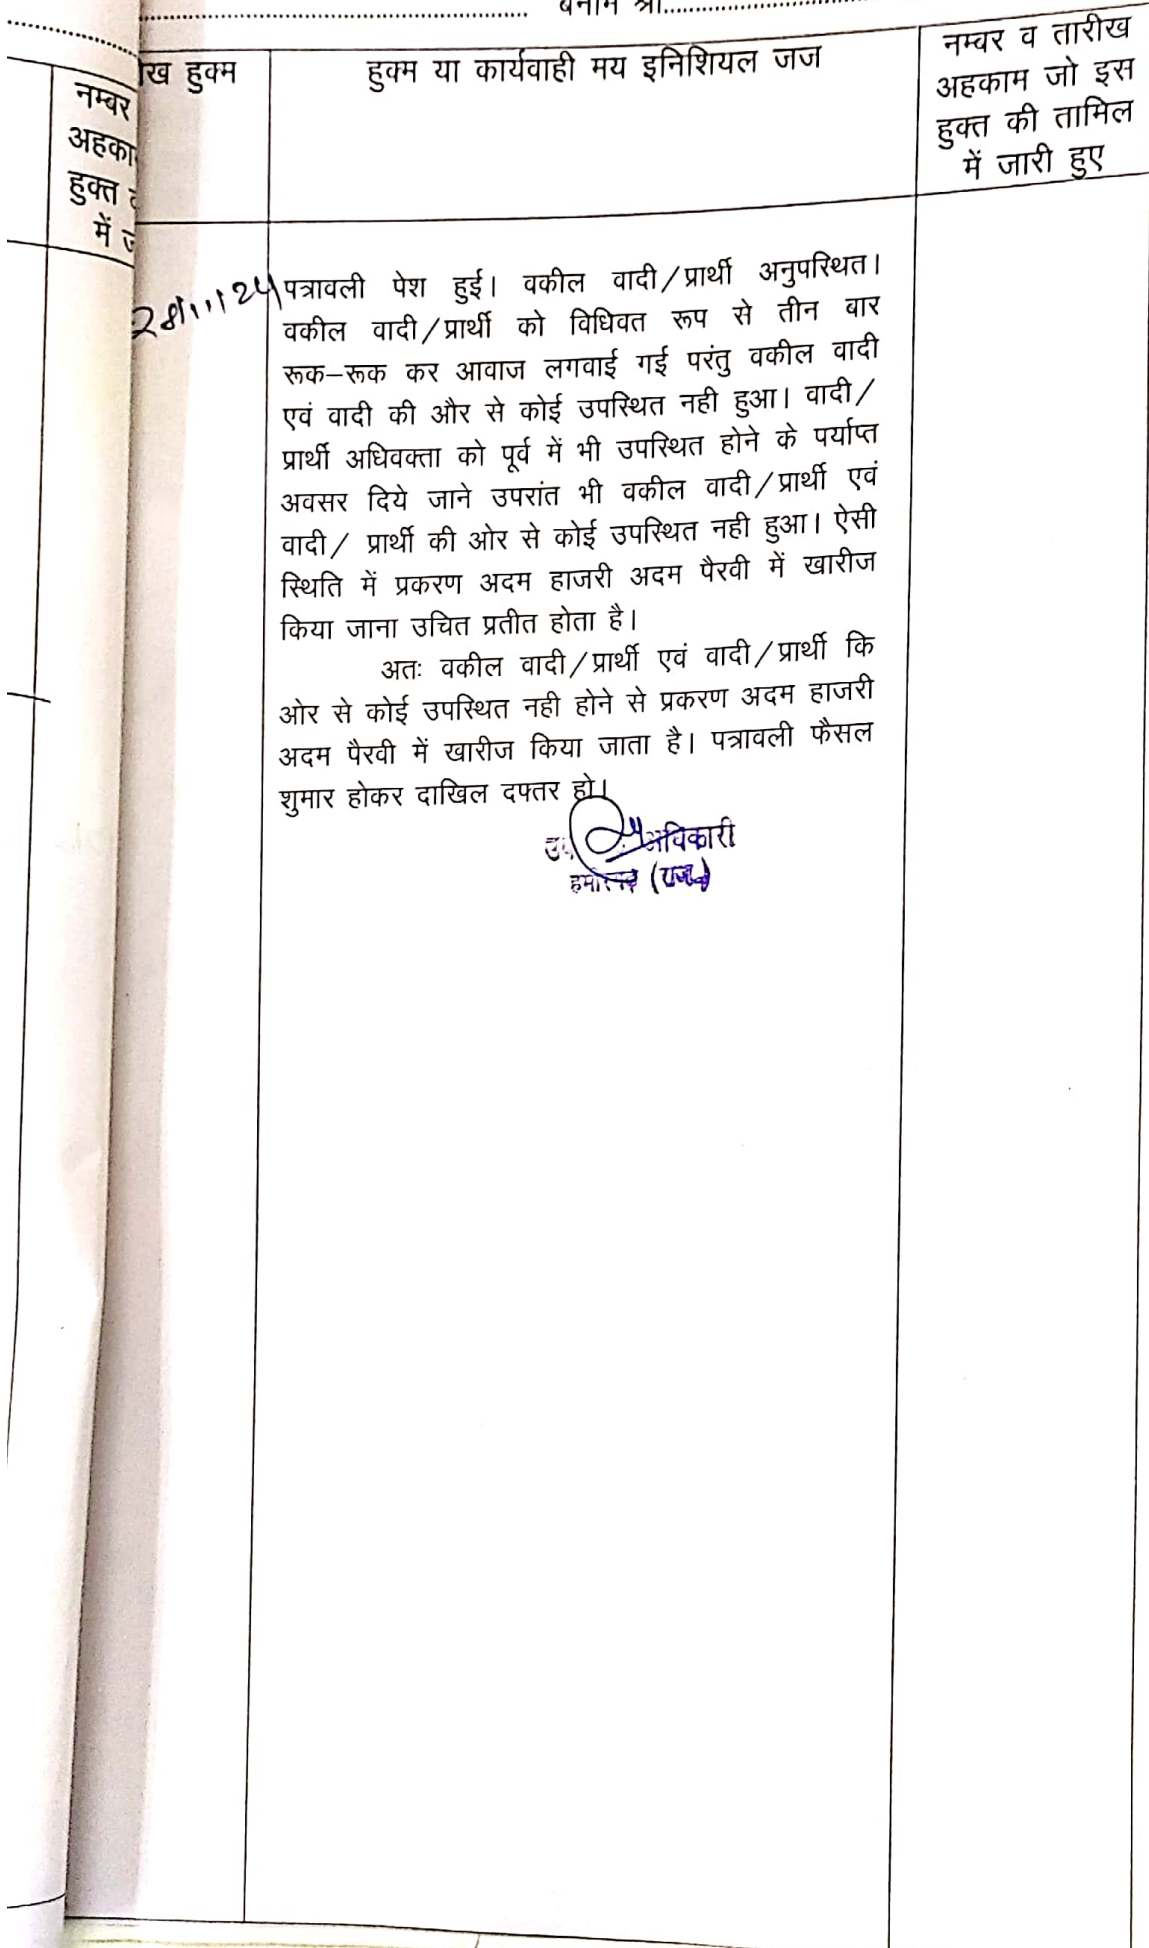 बनाम श्री
नम्बर
हुक्म
हुक्म या कार्यवाही मय इनिशियल जज
नम्बर व तारीख
अहकाम जो इस
हुक्त की तामिल
में जारी हुए
हुक्त
में
28/11/24
पत्रावली पेश हुई। वकील वादी/प्रार्थी अनुपस्थित।
वकील वादी/प्रार्थी को विधिवत रूप से तीन बार
रूक–रूक कर आवाज लगवाई गई परंतु वकील वादी
एवं वादी की और से कोई उपस्थित नही हुआ। वादी/
प्रार्थी अधिवक्ता को पूर्व में भी उपस्थित होने के पर्याप्त
अवसर दिये जाने उपरांत भी वकील वादी/प्रार्थी एवं
वादी/ प्रार्थी की ओर से कोई उपस्थित नही हुआ। ऐसी
स्थिति में प्रकरण अदम हाजरी अदम पैरवी में खारीज
किया जाना उचित प्रतीत होता है।
अतः वकील वादी/प्रार्थी एवं वादी/प्रार्थी कि
ओर से कोई उपस्थित नही होने से प्रकरण अदम हाजरी
अदम पैरवी में खारीज किया जाता है। पत्रावली फैसल
शुमार होकर दाखिल दफ्तर हो।
अधिकारी
(राज.)